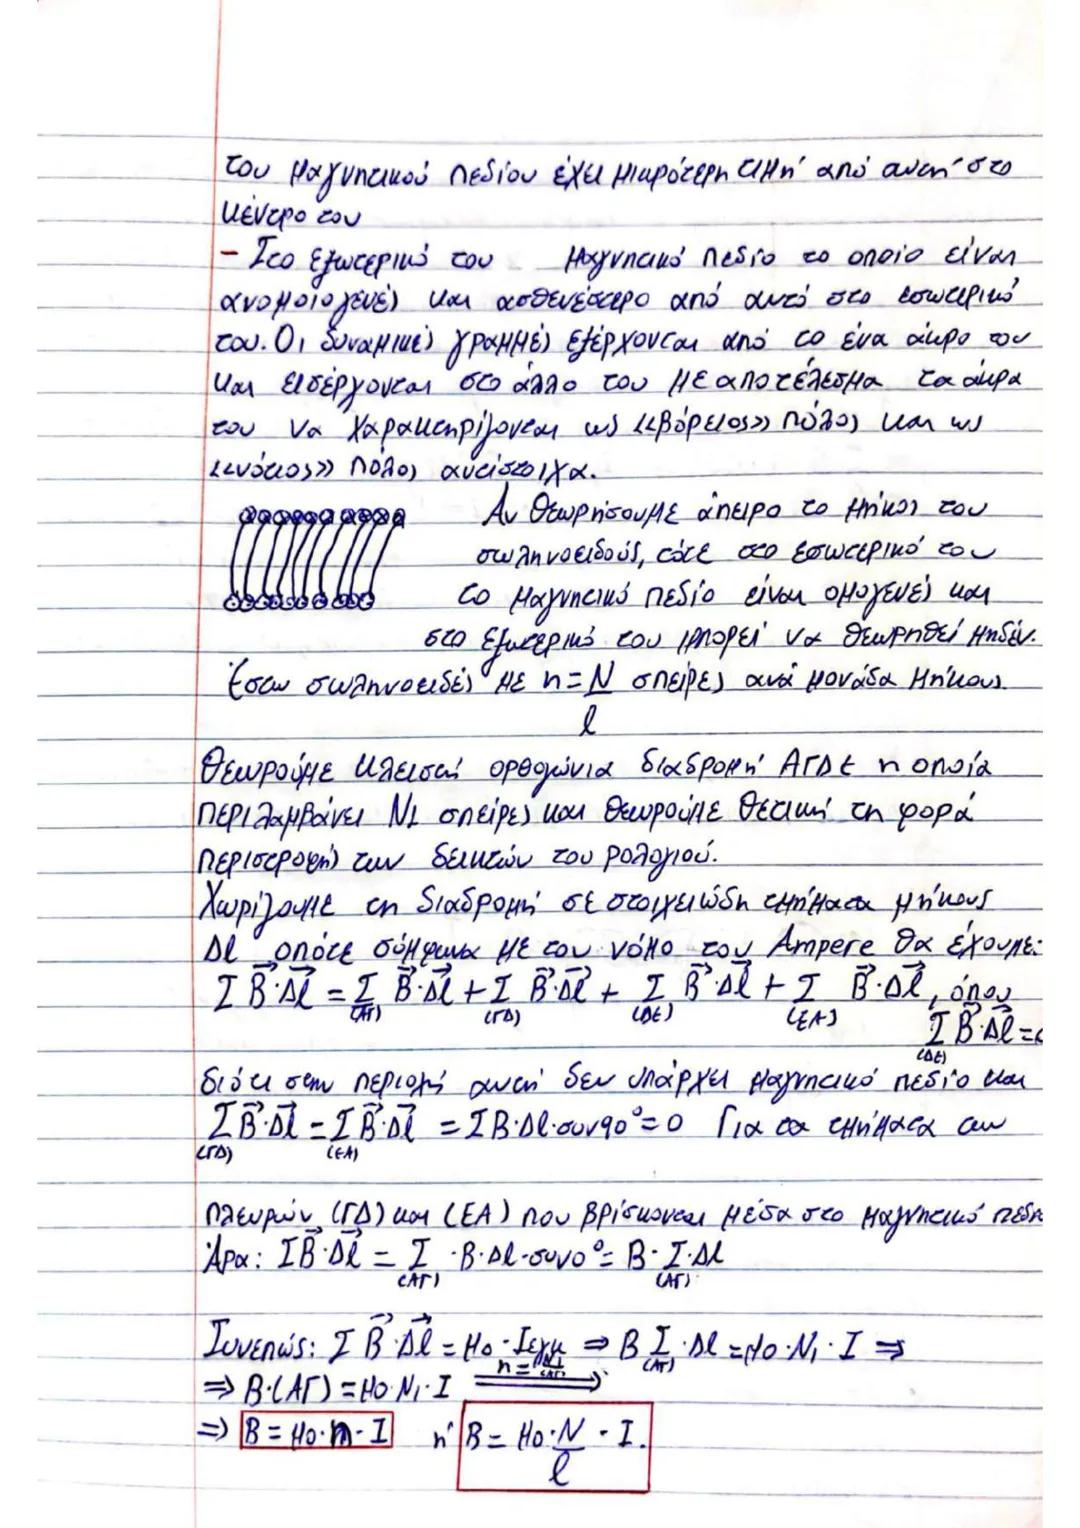 του μαγνητικού πεδίου έχει μικρότερη τιμή από αυτή στο
κέντρο του
- Στο εξωτερικό του μαγνητικό πεδίο το οποίο είναι
ανομοιογενές και ασθενέστερο από αυτό στο εσωτερικό
του. Οι δυναμικές γραμμές εξέρχονται από το ένα άκρο του
και εισέρχονται στο άλλο του με αποτέλεσμα τα άκρα
του να χαρακτηρίζονται ως «βόρειος» πόλος και ως
«νότιος» πόλος αντίστοιχα.
Αν θεωρήσουμε άπειρο το μήκος του
σωληνοειδούς, τότε στο εσωτερικό του
το μαγνητικό πεδίο είναι ομογενές και
στο εξωτερικό του μπορεί να θεωρηθεί μηδέν.
Έστω σωληνοειδές με n = N/l σπείρες ανά μονάδα μήκους.
Θεωρούμε κλειστή ορθογώνια διαδρομή ΑΓΔΕ η οποία
περιλαμβάνει N1 σπείρες και θεωρούμε θετική τη φορά
περιστροφής των δεικτών του ρολογιού.
Χωρίζουμε τη διαδρομή σε στοιχειώδη τμήματα μήκους
Δl οπότε σύμφωνα με τον νόμο του Ampere θα έχουμε:
Σ B⃗·Δl⃗ = Σ(ΑΓ) B⃗·Δl⃗ + Σ(ΓΔ) B⃗·Δl⃗ + Σ(ΔΕ) B⃗·Δl⃗ + Σ(ΕΑ) B⃗·Δl⃗, όπου
Σ(ΔΕ) B⃗·Δl⃗ =
διότι στην περιοχή αυτή δεν υπάρχει μαγνητικό πεδίο και
Σ(ΓΔ) B⃗·Δl⃗ = Σ(ΕΑ) B⃗·Δl⃗ = Σ B·Δl·συν90° = 0 Για τα τμήματα των
πλευρών (ΓΔ) και (ΕΑ) που βρίσκονται μέσα στο μαγνητικό
Άρα: Σ B⃗·Δl⃗ = Σ(ΑΓ) ·B·Δl·συν0° = B·Σ(ΑΓ)·Δl
Συνεπώς: Σ B⃗·Δl⃗ = μ0·Ιεγκ ⇒ B Σ(ΑΓ)·Δl = μ0·N1·I ⇒
⇒ B·(ΑΓ) = μ0·N1·I ⟹ n = N1/(ΑΓ)
⇒ B = μ0·n·I ή B = μ0·N/l·I.